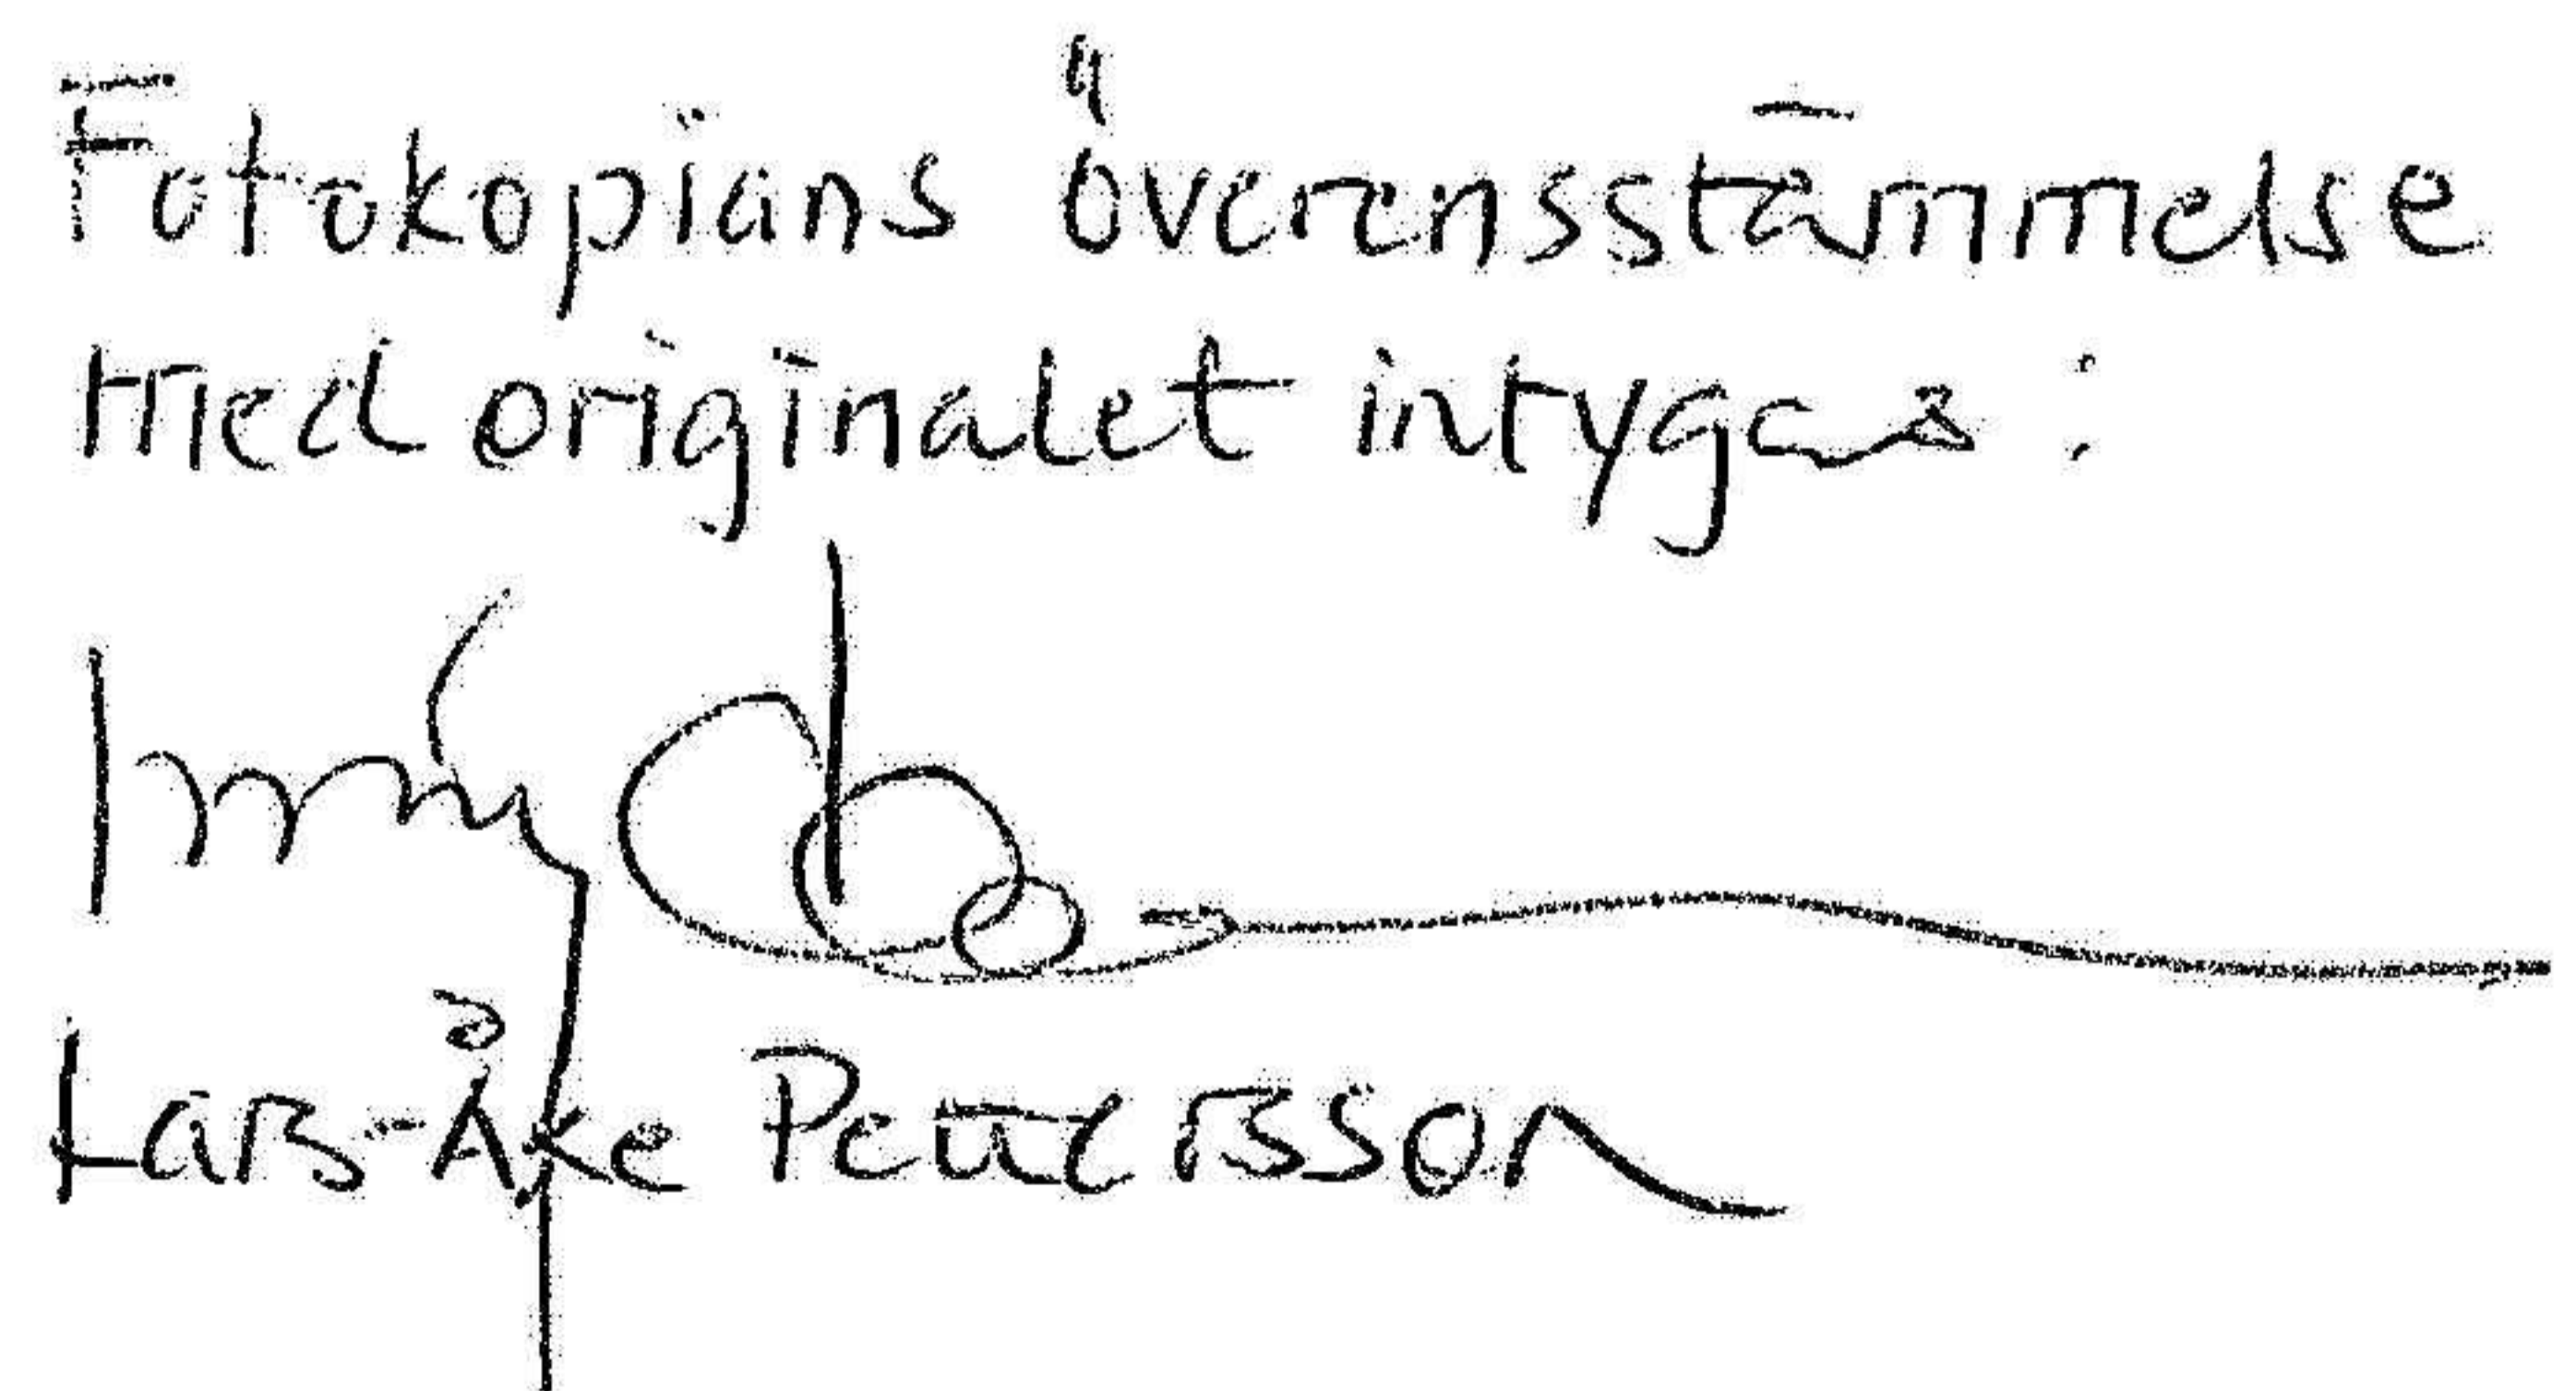 Fotokopians överensstämmelse
med originalet intygas:
Lars-Åke Pettersson